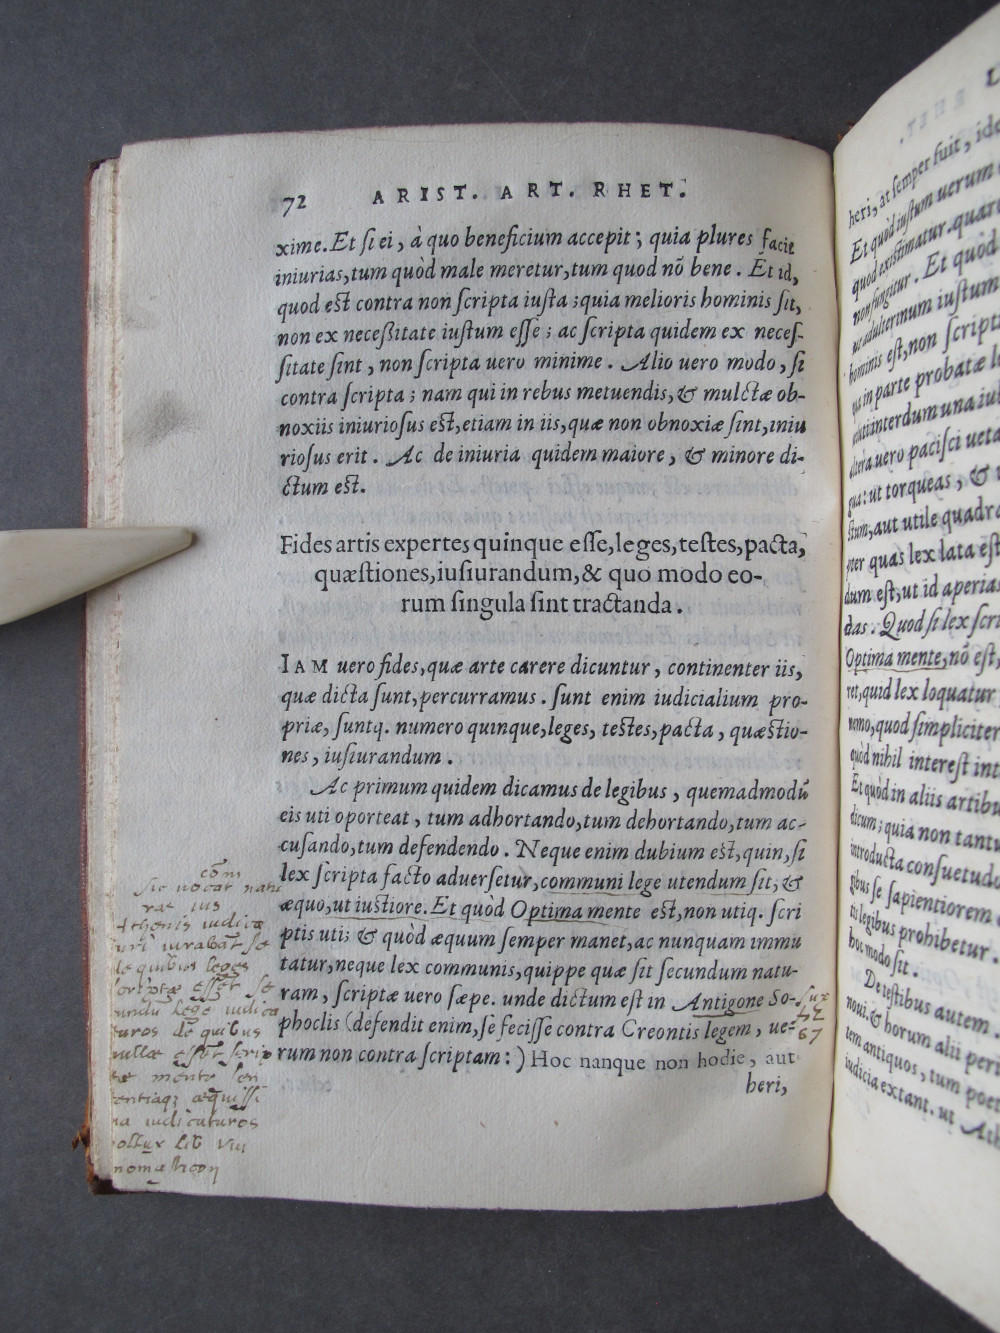 72 ARIST. ART. RHET.
xime. Et si ei, à quo beneficium accepit; quia plures facit
iniurias, tum quòd male meretur, tum quod nõ bene. Et id,
quod est contra non scripta iusta; quia melioris hominis sit,
non ex neceßitate iustum esse; ac scripta quidem ex neces-
sitate sint, non scripta uero minime. Alio uero modo, si
contra scripta; nam qui in rebus metuendis, & mulctæ ob-
noxiis iniuriosus est, etiam in iis, quæ non obnoxiæ sint, iniu
riosus erit. Ac de iniuria quidem maiore, & minore di-
ctum est.
Fides artis expertes quinque esse, leges, testes, pacta,
quæstiones, iusiurandum, & quo modo eo-
rum singula sint tractanda.
IAM uero fides, quæ arte carere dicuntur, continenter iis,
quæ dicta sunt, percurramus. sunt enim iudicialium pro-
priæ, suntq. numero quinque, leges, testes, pacta, quæstio-
nes, iusiurandum.
Ac primum quidem dicamus de legibus, quemadmodũ
eis uti oporteat, tum adhortando, tum dehortando, tum ac-
cusando, tum defendendo. Neque enim dubium est, quin, si
lex scripta facto aduersetur, communi lege utendum sit, &
æquo, ut iustiore. Et quòd Optima mente est, non utiq. scri
ptis uti; & quòd æquum semper manet, ac nunquam immu
tatur, neque lex communis, quippe quæ sit secundum natu-
ram, scriptæ uero sæpe. unde dictum est in Antigone So-
phoclis (defendit enim, se fecisse contra Creontis legem, ue-
rum non contra scriptam:) Hoc nanque non hodie, aut
heri,
cõm
sic uocat natu
rae ius
Athenis iudica
turi iurabãt se
de quibus leges
scriptæ essẽt se
cundũ lege iudica
turos de quibus
nullæ essẽt scrip
tæ mente sen
tentiaq; æquissi
ma iudicaturos
pollux lib VIII
onomasticon
67
heri, at semper fuit, ide
Et quòd iustum uerum
quod existimatur. quare
non fungitur. Et quòd
ue adulterinum iustum
hominis est, non script
qua in parte probatæ l
interdum una iub
altera uero pacisci ueta
gua: ut torqueas, &
stum, aut utile quadra
pter quas lex lata est
dum est, ut id aperias
das. Quod si lex scri
Optima mente, nõ est,
ret, quid lex loquatur
nemo, quod simpliciter
quòd nihil interest int
Et quòd in aliis artibu
dicum; quia non tantu
introducta consuetudo
gibus se sapientiorem
tis legibus prohibetur.
hoc modo sit.
De testibus autem
noui. & horum alii peri
tem antiquos, tum poet
iudicia extant. ut Ath